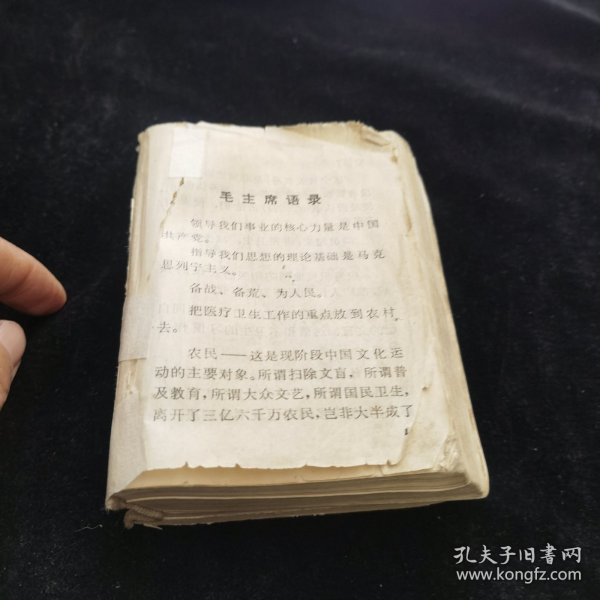 毛主席语录
领导我们事业的核心力量是中国
共产党。
指导我们思想的理论基础是马克
思列宁主义。
备战、备荒、为人民。
把医疗卫生工作的重点放到农村
去。
农民——这是现阶段中国文化运
动的主要对象。所谓扫除文盲，所谓普
及教育，所谓大众文艺，所谓国民卫生，
离开了三亿六千万农民，岂非大半成了
1
孔夫子旧书网
www.kongfz.com